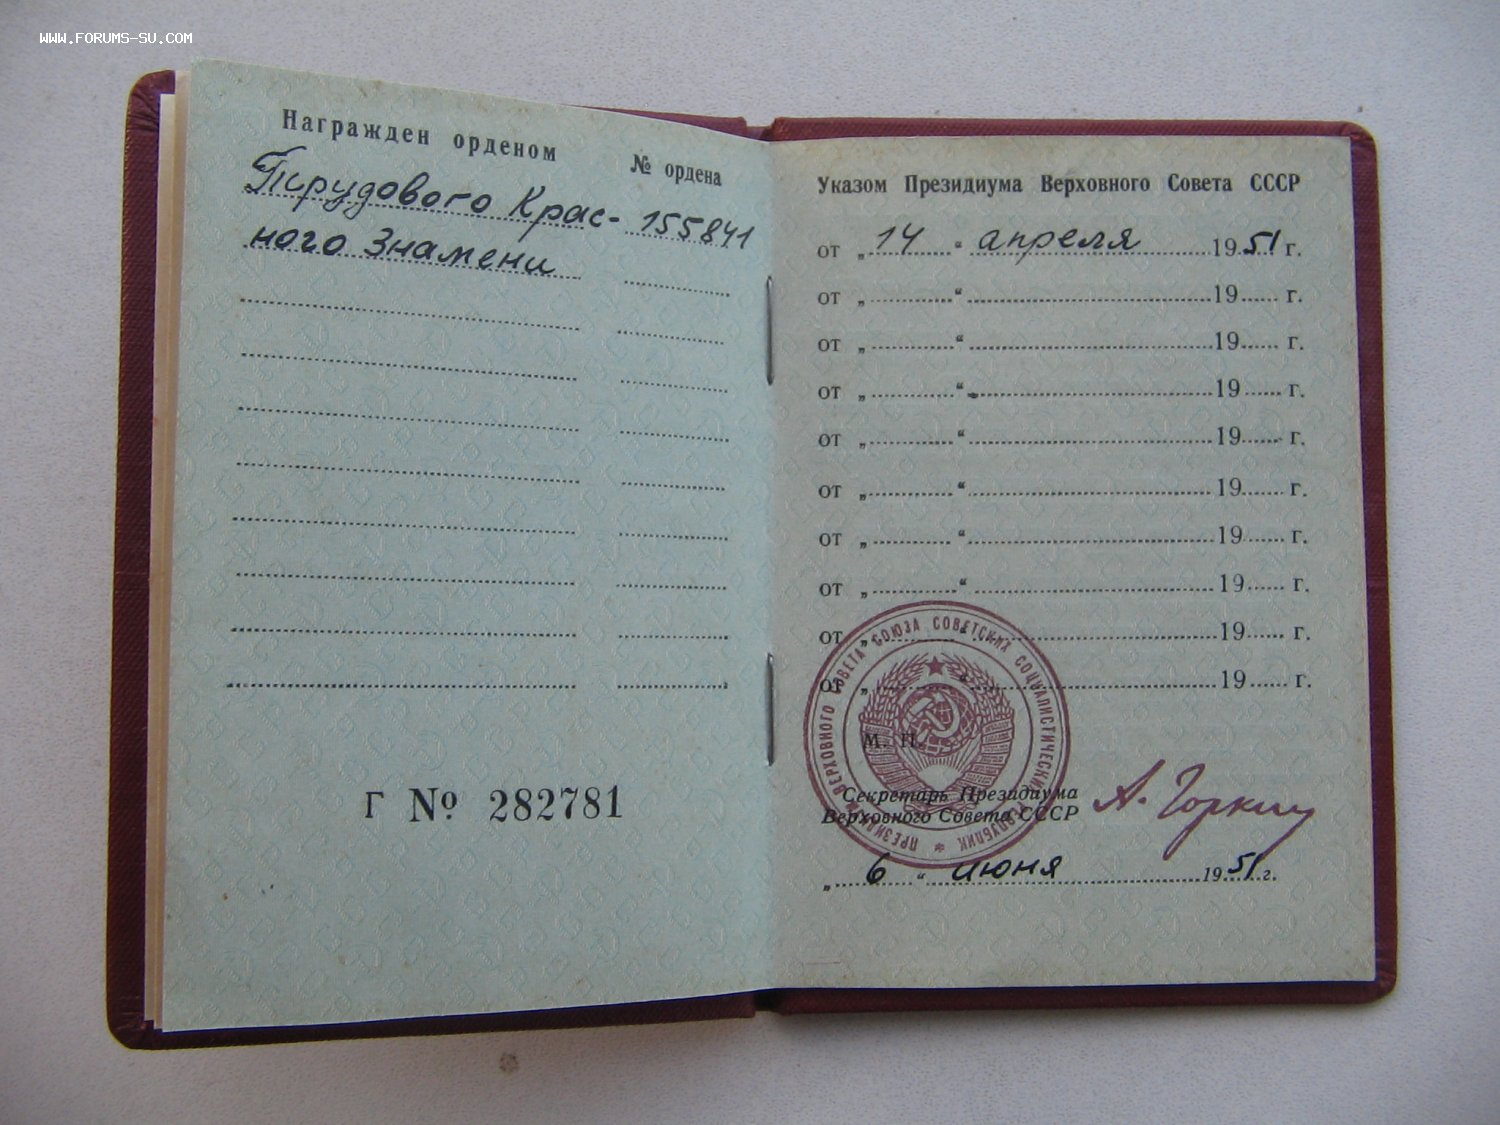 WWW.FORUMS-SU.COM
Награжден орденом № ордена
Трудового Крас- 155841
ного Знамени
Г № 282781
Указом Президиума Верховного Совета СССР
от „ 14 “ апреля 1951 г.
от „ “ 19 г.
от „ “ 19 г.
от „ “ 19 г.
от „ “ 19 г.
от „ “ 19 г.
от „ “ 19 г.
от „ “ 19 г.
от „ “ 19 г.
от „ “ 19 г.
ПРЕЗИДИУМ ВЕРХОВНОГО СОВЕТА СОЮЗА СОВЕТСКИХ СОЦИАЛИСТИЧЕСКИХ РЕСПУБЛИК
М. П.
Секретарь Президиума
Верховного Совета СССР
А. Горкин
„ 6 “ июня 1951 г.